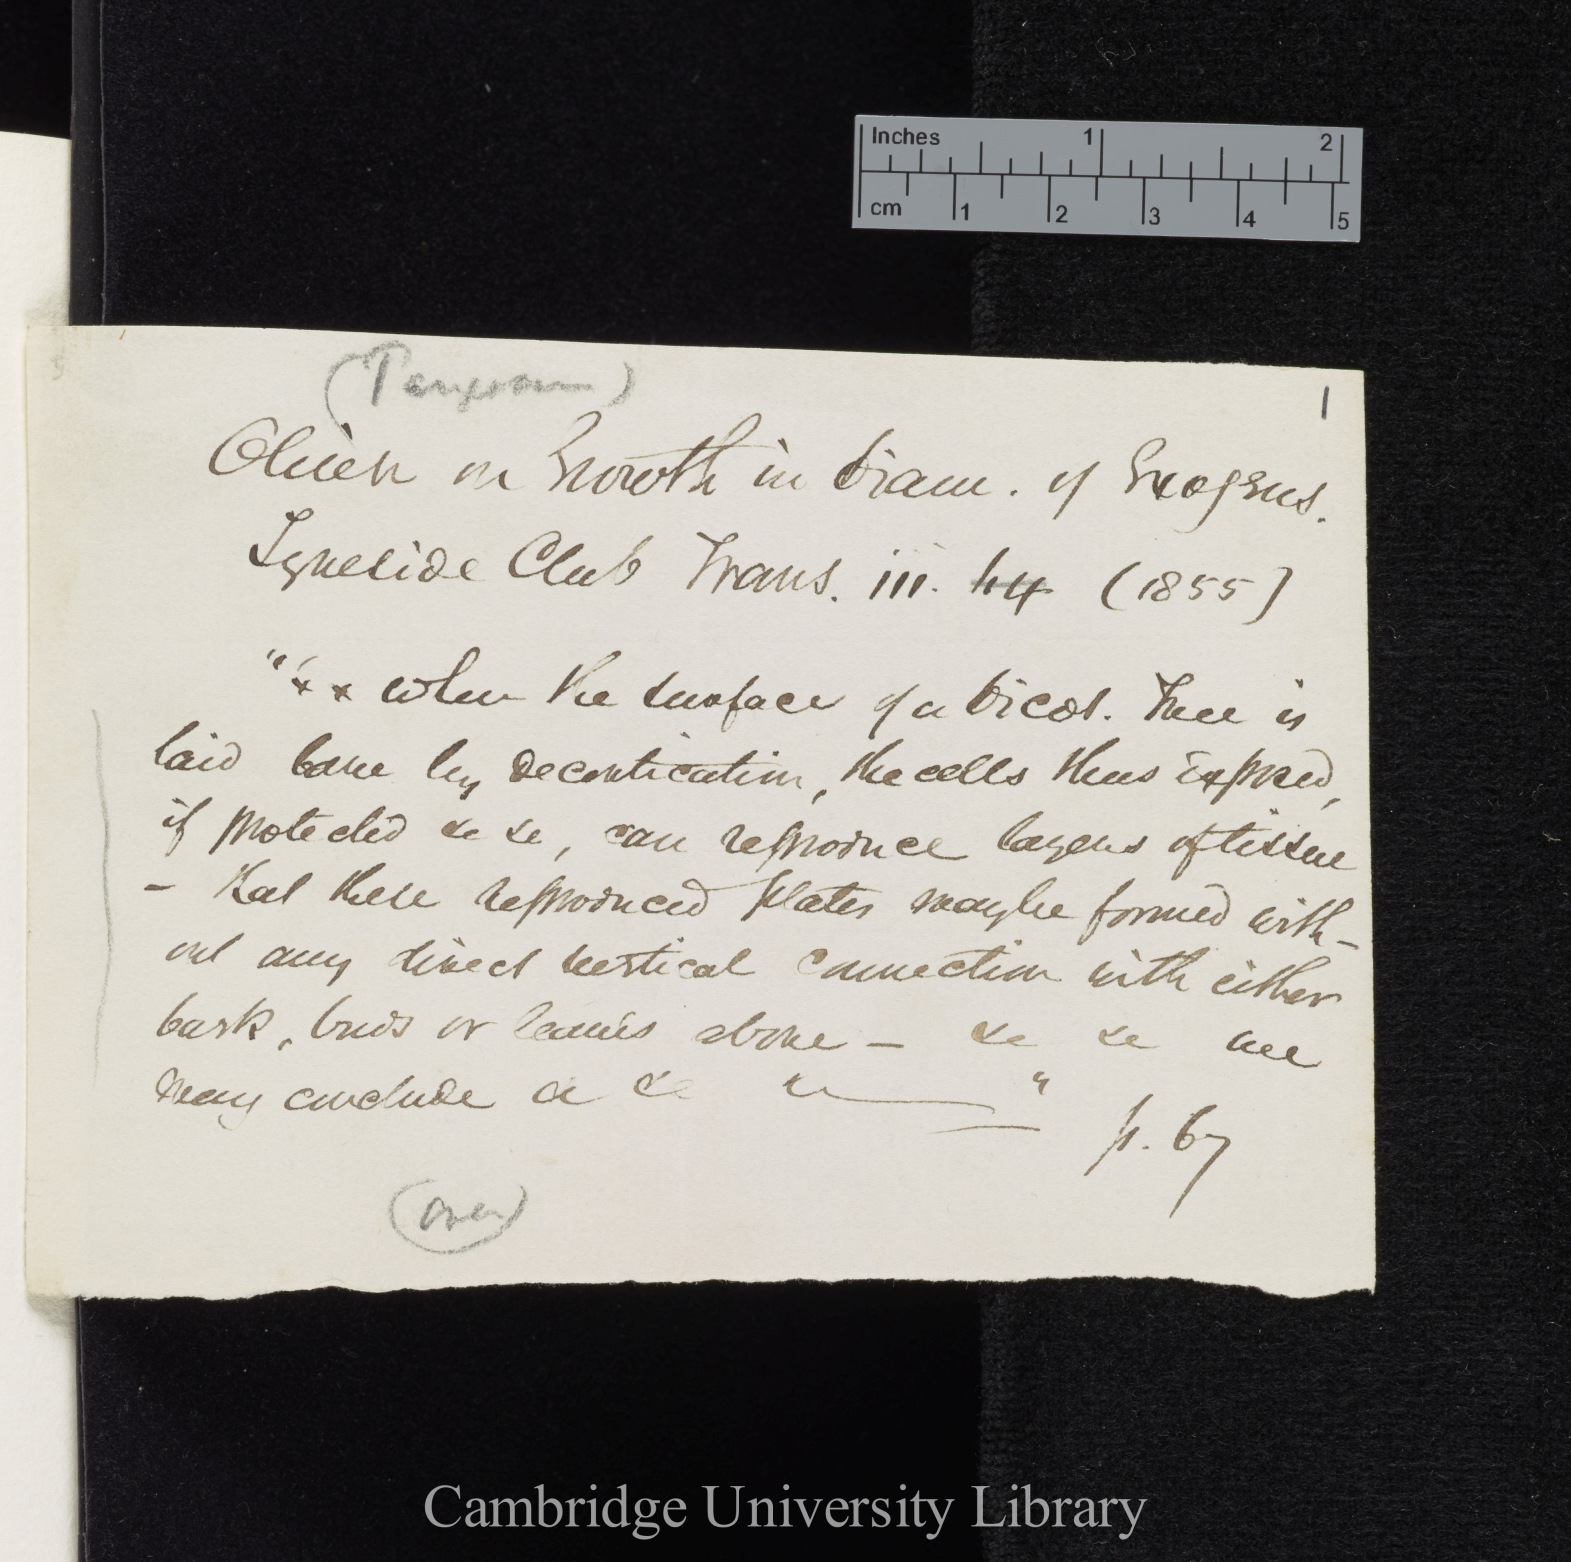 Inches 1 2
cm 1 2 3 4 5
(Pangenesis)
1
Oliver on Growth in Diam. of Exogens.
Tyneside Club Trans. iii. 44 (1855)
"x x when the surface of a Dicot. Tree is
laid bare by decortication, the cells thus exposed,
if protected &c &c, can reproduce layers of tissue
– that these reproduced plates may be formed with-
out any direct vertical connection with either
bark, buds or leaves above – &c &c we
may conclude &c &c &c "
p. 67
(over)
Cambridge University Library